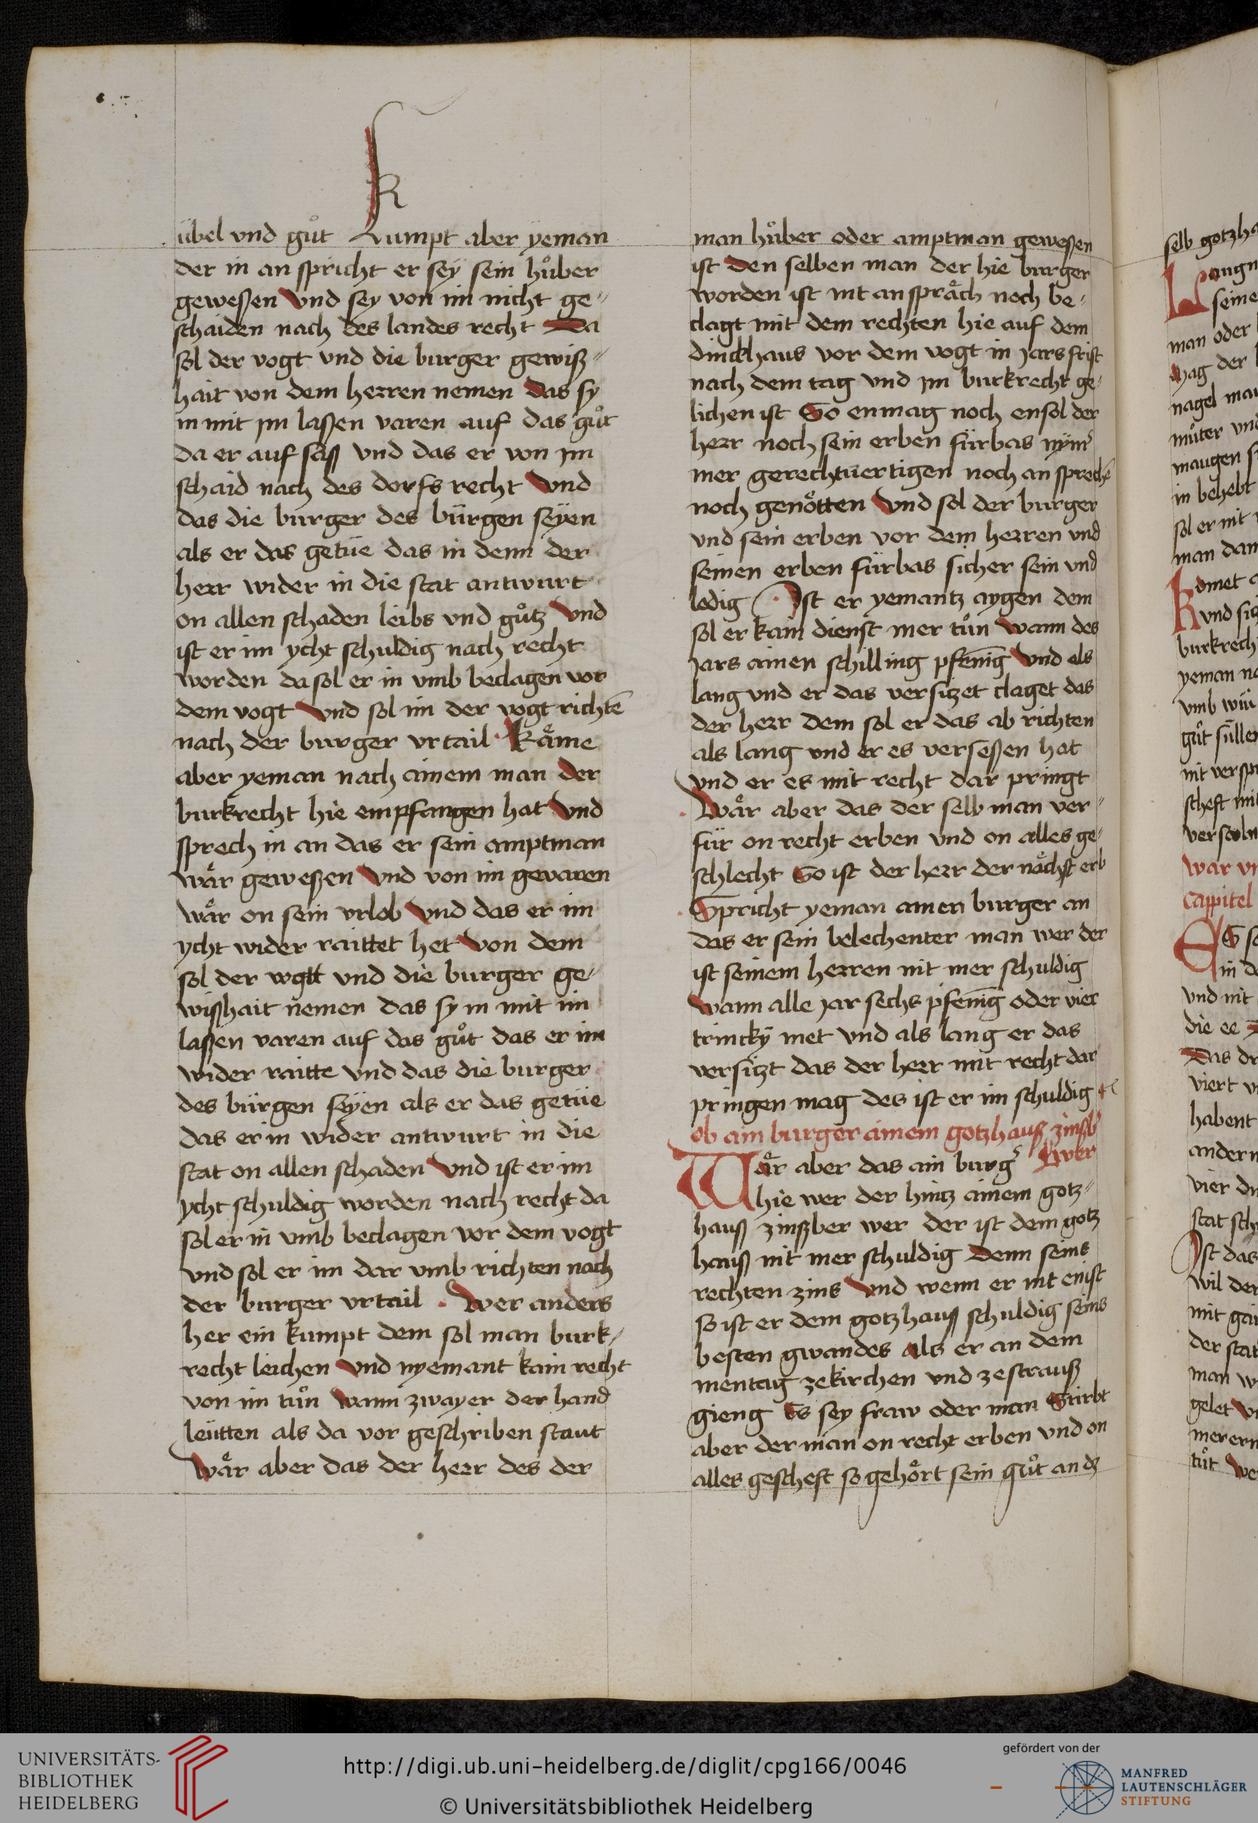 übel vnd gůt Kumpt aber yeman
der in an spricht er sey sein hůber
geweßen Vnd sey von im nicht ge-
schaiden nach des landes recht Da
sol der vogt vnd die burger gewiß-
hait von dem herren nemen das sy
in mit im laßen varen auf das gůt
da er auf säß vnd das er von im
schaid nach des dorfs recht Vnd
das die burger des bürgen seyen
als er das getüe das in denn der
herr wider in die stat antwurt
on allen schaden leibs vnd gůtz Vnd
ist er im ycht schuldig nach recht
worden da sol er in vmb beclagen vor
dem vogt Vnd sol im der vogt richtē
nach der burger vrtail Käme
aber yeman nach ainem man der
burkrecht hie empfangen hat Vnd
sprech in an das er sein amptman
wär geweßen Vnd von im gevaren
wär on sein vrlob Vnd das er im
ycht wider raittet het Von dem
sol der vogtt vnd die burger ge-
wißhait nemen das sy in mit im
laßen varen auf das gůt das er im
wider raitte vnd das die burger
des bürgen seyen als er das getüe
das er in wider antwurt in die
stat on allen schaden Vnd ist er im
ycht schuldig worden nach recht da
sol er in vmb beclagen vor dem vogt
vnd sol er im dar vmb richten nach
der burger vrtail . Wer anders
her ein kumpt dem sol man burk-
recht leichen Vnd nyemant kain recht
von im tůn Wann zwayer der hand
leütten als da vor geschriben staut
Wär aber das der herr des der
man hůber oder amptman geweßen
ist Den selben man der hie burger
worden ist nit an spräch noch be-
clagt mit dem rechten hie auf dem
dinckhaus vor dem vogt in jars frist
nach dem tag vnd im burkrecht ge-
lichen ist So enmag noch ensol der
herr noch sein erben fürbas nym-
mer gerechtuertigen noch an sprechē
noch genötten Vnd sol der burger
vnd sein erben vor dem herren vnd
seinen erben fürbas sicher sein vnd
ledig Ist er yemantz aygen dem
sol er kain dienst mer tůn Wann des
jars ainen schilling pfenīg Vnd als
lang vnd er das versizet claget das
der herr dem sol er das ab richten
als lang vnd er es verseßen hat
vnd er es mit recht dar pringt
Wär aber das der selb man ver-
für on recht erben vnd on alles ge-
schlecht So ist der herr der nächst erb
Spricht yeman ainen burger an
das er sein belechenter man wer der
ist seinem herren nit mer schuldig
Wann alle jar sechs pfenīg oder vier
trincky met vnd als lang er das
versizt das der herr mit recht dar
pringen mag des ist er im schuldig
ob ain burger ainem gotzhauß zinßb
Wär aber das ain burgʼ
hie wer der hintz ainem gotz-
hauß zinßber wer der ist dem gotz
hauß nit mer schuldig Denn seins
rechten zins Vnd wenn er nit enist
so ist er dem gotzhauß schuldig seins
besten gwandes Als er an dem
mentag zekirchen vnd ze strauß
gieng Es sey fraw oder man Stirbt
aber der man on recht erben vnd on
alles gescheft so gehört sein gůt an dz
selb gotzha
seine
man oder
mag der
nagel mau
můter vnd
maugen s
in behebt
sol er nit
man dan
vnd sic
burkrech
yeman na
gůt süllen
nit verspr
scheft mit
war vn
Cappitel
Es se
in de
vnd nit
die ee
Das dr
viert v
habent
andern
vier di
stat sch
Ist das
wil der
mit gai
der stat
man w
gelet vn
merern
tůt We
UNIVERSITÄTS-
BIBLIOTHEK
HEIDELBERG
http://digi.ub.uni-heidelberg.de/diglit/cpg166/0046
© Universitätsbibliothek Heidelberg
gefördert von der
MANFRED
LAUTENSCHLÄGER
STIFTUNG